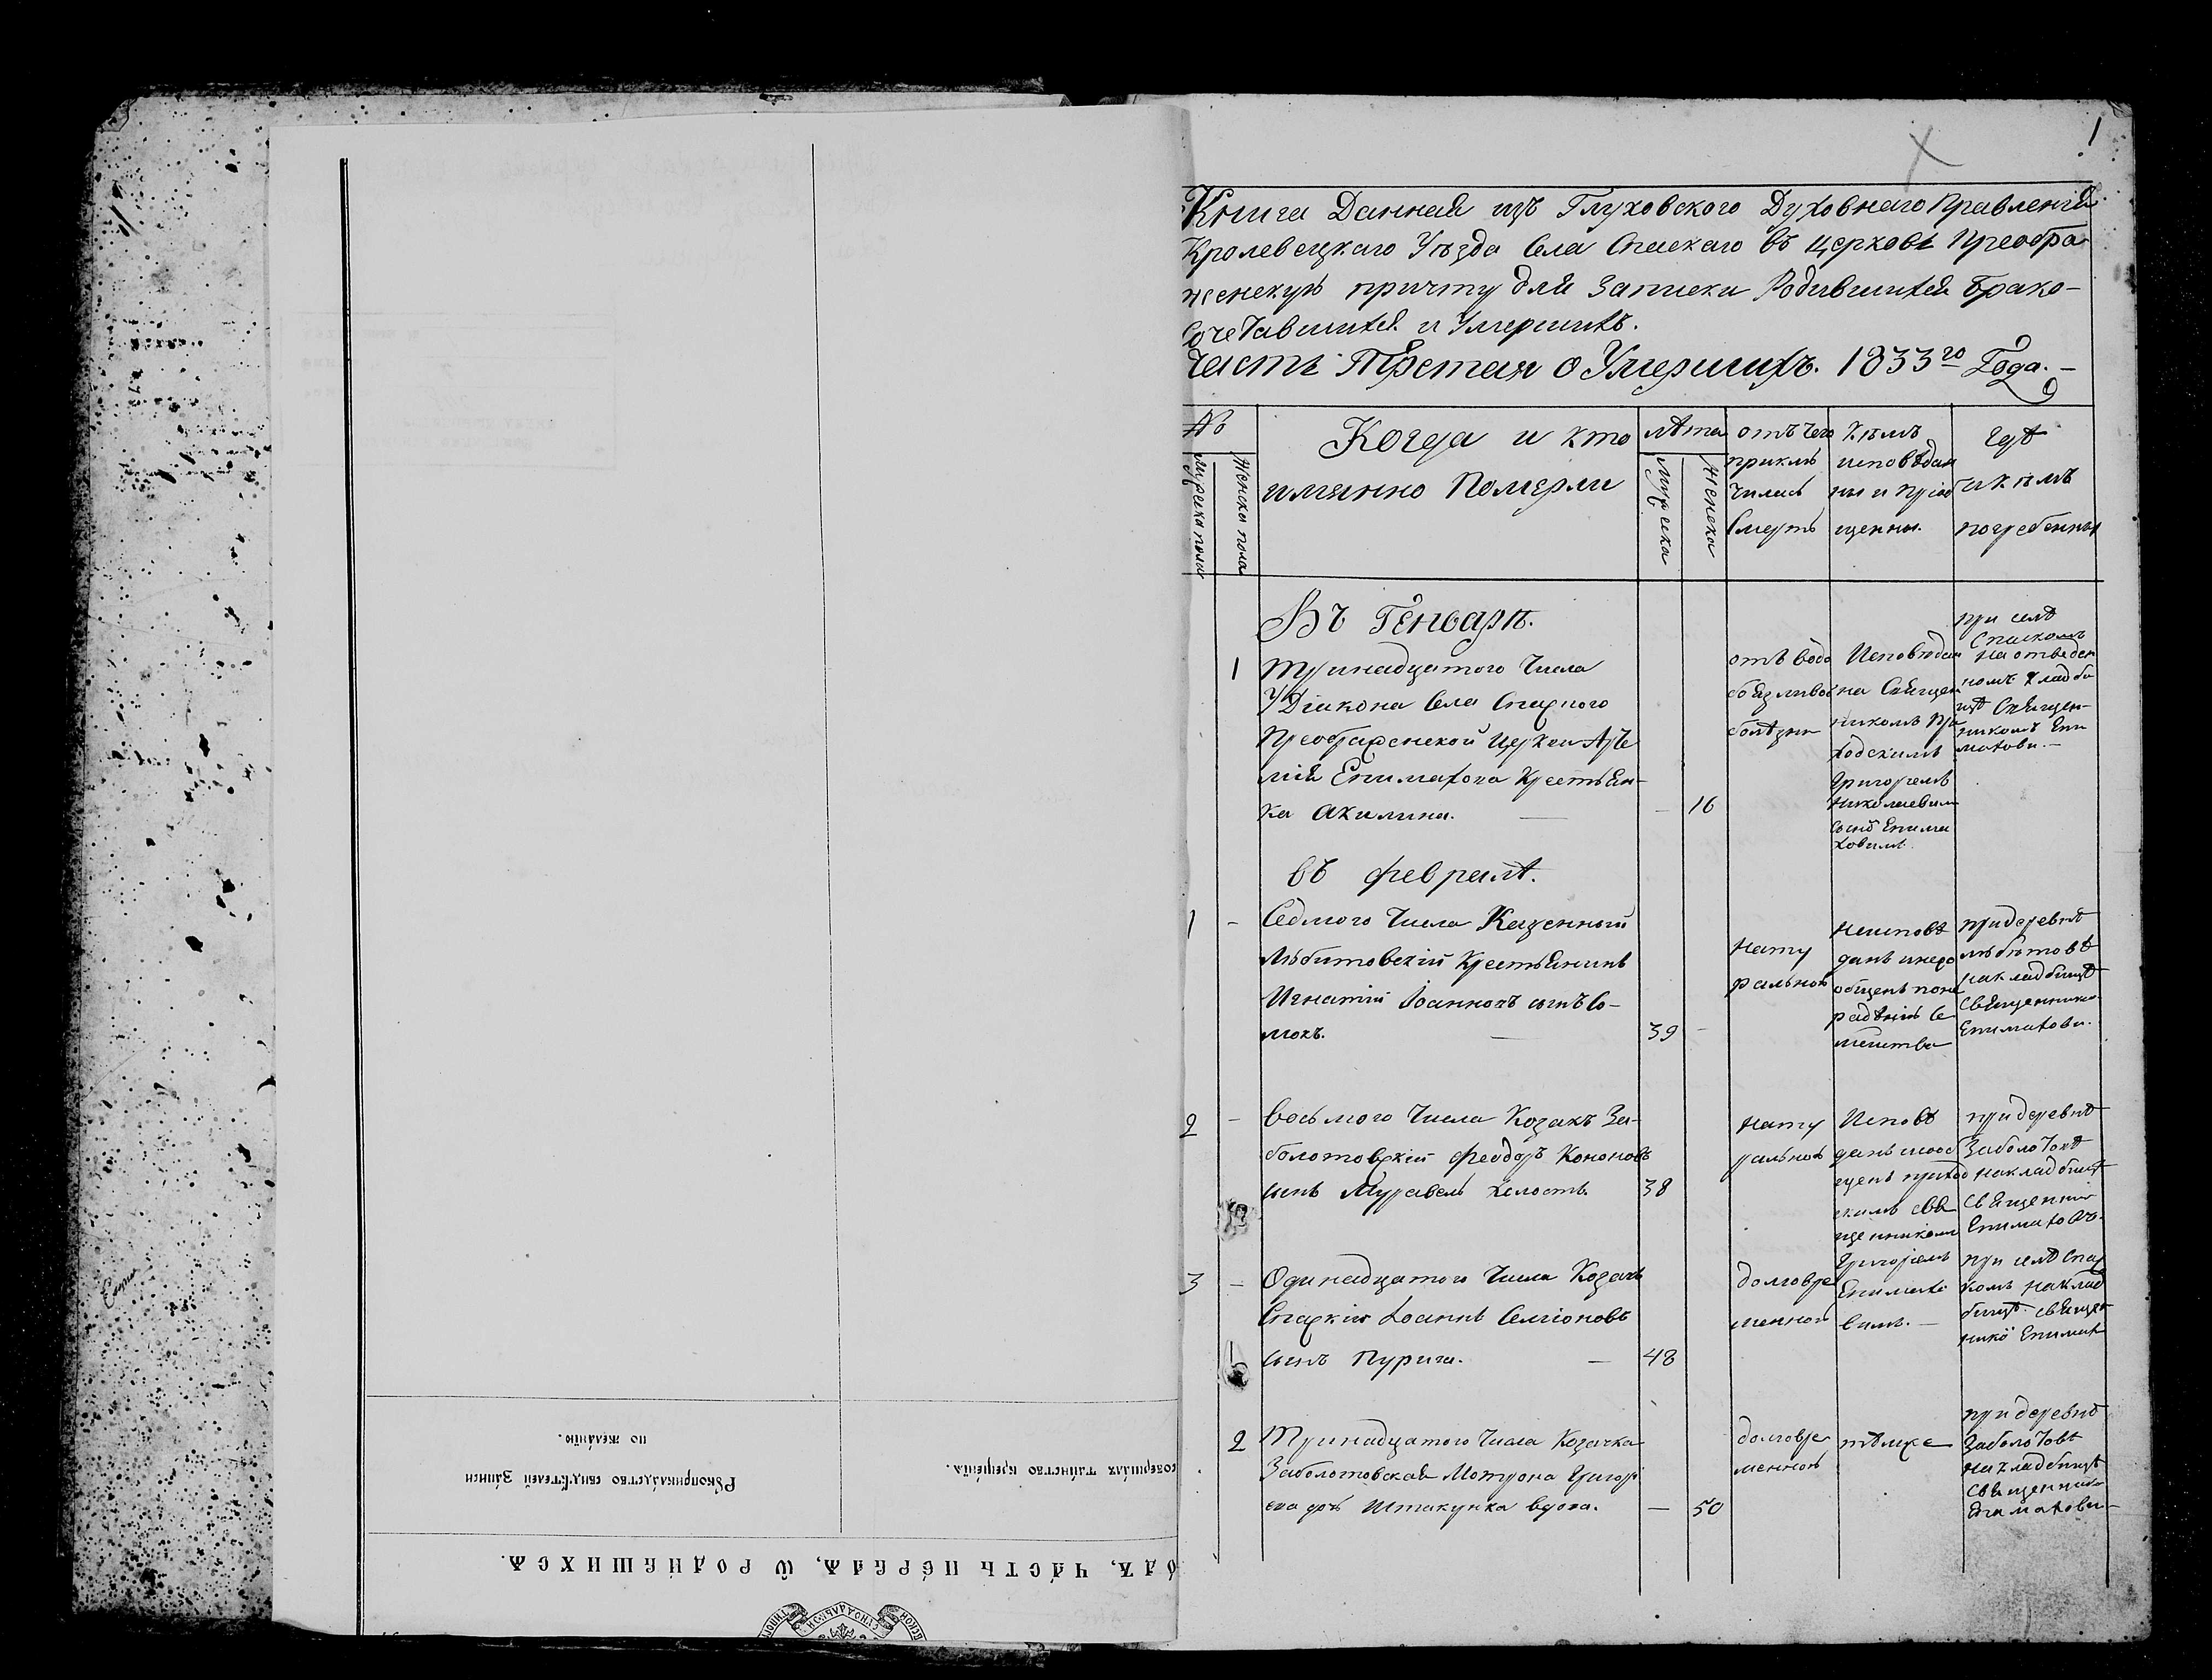 1
Книга Данная изъ Глуховского Духовнаго Правленія
Кролевецкаго Уѣзда Села Спаскаго въ церковь Преобра
женскую причту для Записки Родившихся Брако-
Сочетавшихся и Умершихъ.
Часть Третая о Умершихъ. 1833го Года.
№
Мужеска пола
Женска пола
Когда и кто
именно Померли
лѣта
Мужеска
Женска
отъ чего
приклю
чилась
Смерть
Кѣмъ
исповѣдан
ны и пріоб
щенны.
Гдѣ
и кѣмъ
погребенны
Въ Генварѣ.
1
тринадцатого Числа
У Діакона Села Спаского
Преображенской Церкви Арте
мія Епимахова Крестьян-
ка Акилина.
—
16
отъ водо
боязливой
болѣзни
Исповѣдан
на Священ
никомъ При
ходскимъ
Григоріемъ
Николаевым
сынъ Епима
ховимъ
при селѣ
Спаскомъ
на отведен
номъ кладби
щѣ Священ-
никомъ Епи
маховы.—
въ февралѣ.
1
-
Седмого Числа Казенный
Любитовскій Крестьянинъ
Игнатій Іоанновъ сынъ Со-
мокъ.
39
-
нату
ральной
Неисповѣ
данъ инепріо
общенъ поне
радѣнію Се
мейства
придеревнѣ
любитовѣ
накладбищѣ
Священнико
Епимаховы.
2
-
Восьмого Числа Козакъ За-
болотовскій Феодоръ Кононовъ
сынъ Муравель холостъ.
38
нату
ральной
Исповѣ
данъ ипріоб
щенъ приход
скимъ свя
щенником
Григоріемъ
Епимахо
вимъ.—
придеревнѣ
Заболотовѣ
накладбищѣ
Священни
Епимаховъ.
3
-
Одинадцатого Числа Козакъ
Спаскій Іоаннъ Симіоновъ
сынъ Пурига.
48
долговре
менной
при селѣ Спас
комъ наклад
бищѣ священ
нико Епимах
2
Тринадцатого Числа Козачка
Заболотовская Мотрона Григорі
ева дочь Штакунка вдова.
—
50
долговре
менной
тѣмже
придеревнѣ
Заболотовѣ
накладбищѣ
Священнико
Епимаховы
Рꙋкоприкладство свидѣтелей Записи
по желанію.
совершалъ таинство крещенія.
ОДѢ, ЧАСТЬ ПЕРВАѦ, Ѿ РОДИВШИХСѦ.